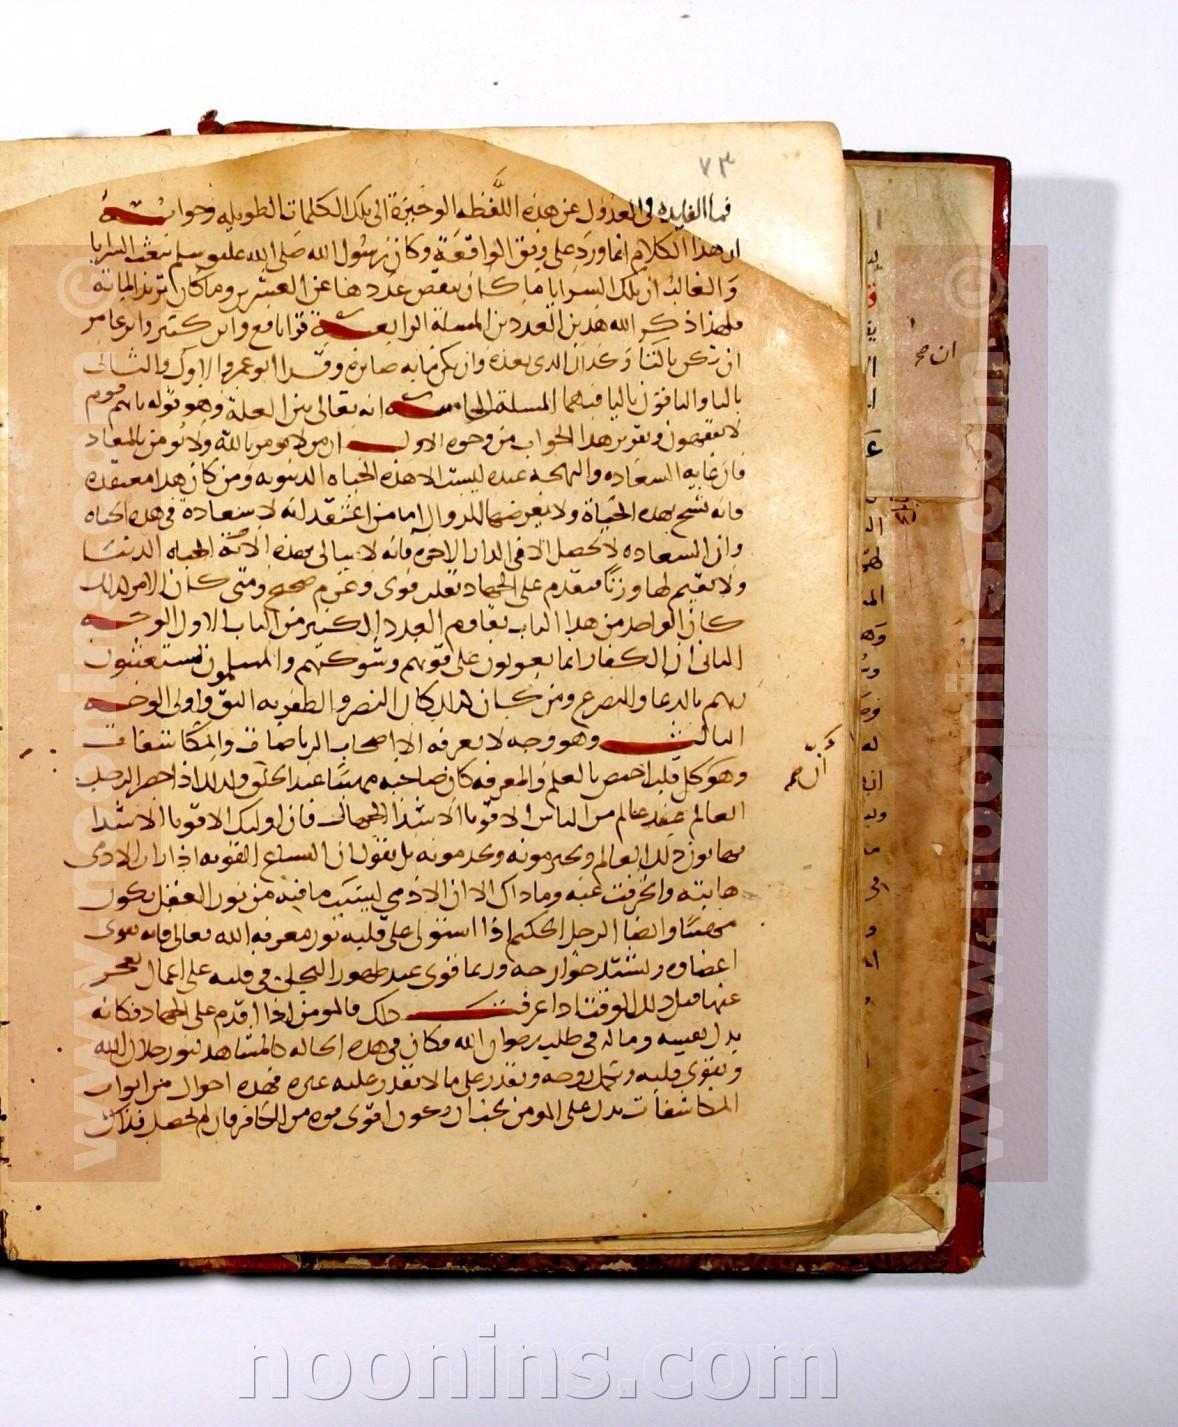 ٧٣
فما الفايده فى العدول عن هذه اللفظه الوجيزة الى تلك الكلمات الطويله وجوابه
ان هذا الكلام انما ورد على وفق الواقعة وكان رسول الله صلى الله عليه وسلم يبعث السرايا
والغالب ان تلك السرايا ما كان ينقص عددها عن العشرين وما كان تزيد المائه
فلهذا ذكر الله هذين العددين المسلة الرابعة قرا نافع وابن كثير وابن عامر
ان تكن بالتا وكذلك الذى بعده وان يكن منكم مايه صابره وقرا ابو عمرو الاول واالثانى
بالتا والباقون باليا فيهما المسلة الخامسة انه تعالى بين العلة وهو قوله بانهم قوم
لا يفقهون وتقرير هذا الجواب من وجوه الاول ان من لا يومن بالله ولا يومن بالمعاد
فان غايه السعاده والبهجه عنده ليست الا هذه الحياه الدنيويه ومن كان هذا معتقده
فانه يشح بهذه الحياة ولا يعرضها للزوال اما من اعتقد انه لا سعادة فى هذه الحياه
وان السعاده لا تحصل الا فى الدار الاخرة فانه لا يبالى بهذه الحياه الدنيا
ولا يقيم لها وزنا فيقدم على الجهاد بقلب قوى وعزم صحيح ومتى كان الامر كذلك
كان الواحد من هذا الباب يقاوم العدد الكثير من الباب الاول الوجه
الثانى ان الكفار انما يعولون على قوتهم وشوكتهم والمسلمون يستعينون
بربهم بالدعا والتضرع ومن كان كذلك كان النصر والظفر به اليق واولى الوجه
الثالث وهو وجه لا يعرفه الا اصحاب الرياضات والمكاشفات
وهو كل قلب اختص بالعلم والمعرفه كان صاحبه مهيبا عند الخلق ولذلك اذا حضر الرجل
العالم عند عالم من الناس الاقويا الاشدا الجهال فان اوليك الاقويا الاشدا
يهابون ذلك العالم ويحترمونه ويخدمونه بل نقول ان السباع القويه اذا رات الادمى
هابته وانحرفت عنه وما ذاك الا ان الادمى لسبب ما فيه من نور العقل يكون
مهيبا وايضا الرجل الحكيم اذا استولى على قلبه نور معرفه الله تعالى فانه تقوى
اعضاوه وتشتد جوارحه وربما قوى عند ظهور التجلى فى قلبه على اعمال يعجز
عنها قبل ذلك الوقت اذا عرفت ذلك فالمومن اذا اقدم على الجهاد فكانه
بذل نفسه وماله فى طلب رضوان الله فكان فى هذه الحاله كالمشاهد لنور جلال الله
ويقوى قلبه وتكمل روحه ويقدر على ما لا يقدر عليه غيره فهذه احوال من ابواب
المكاشفات تدل على المومن يجب ان يكون اقوى قوه من الكافر فان لم يحصل فذاك
ان صح